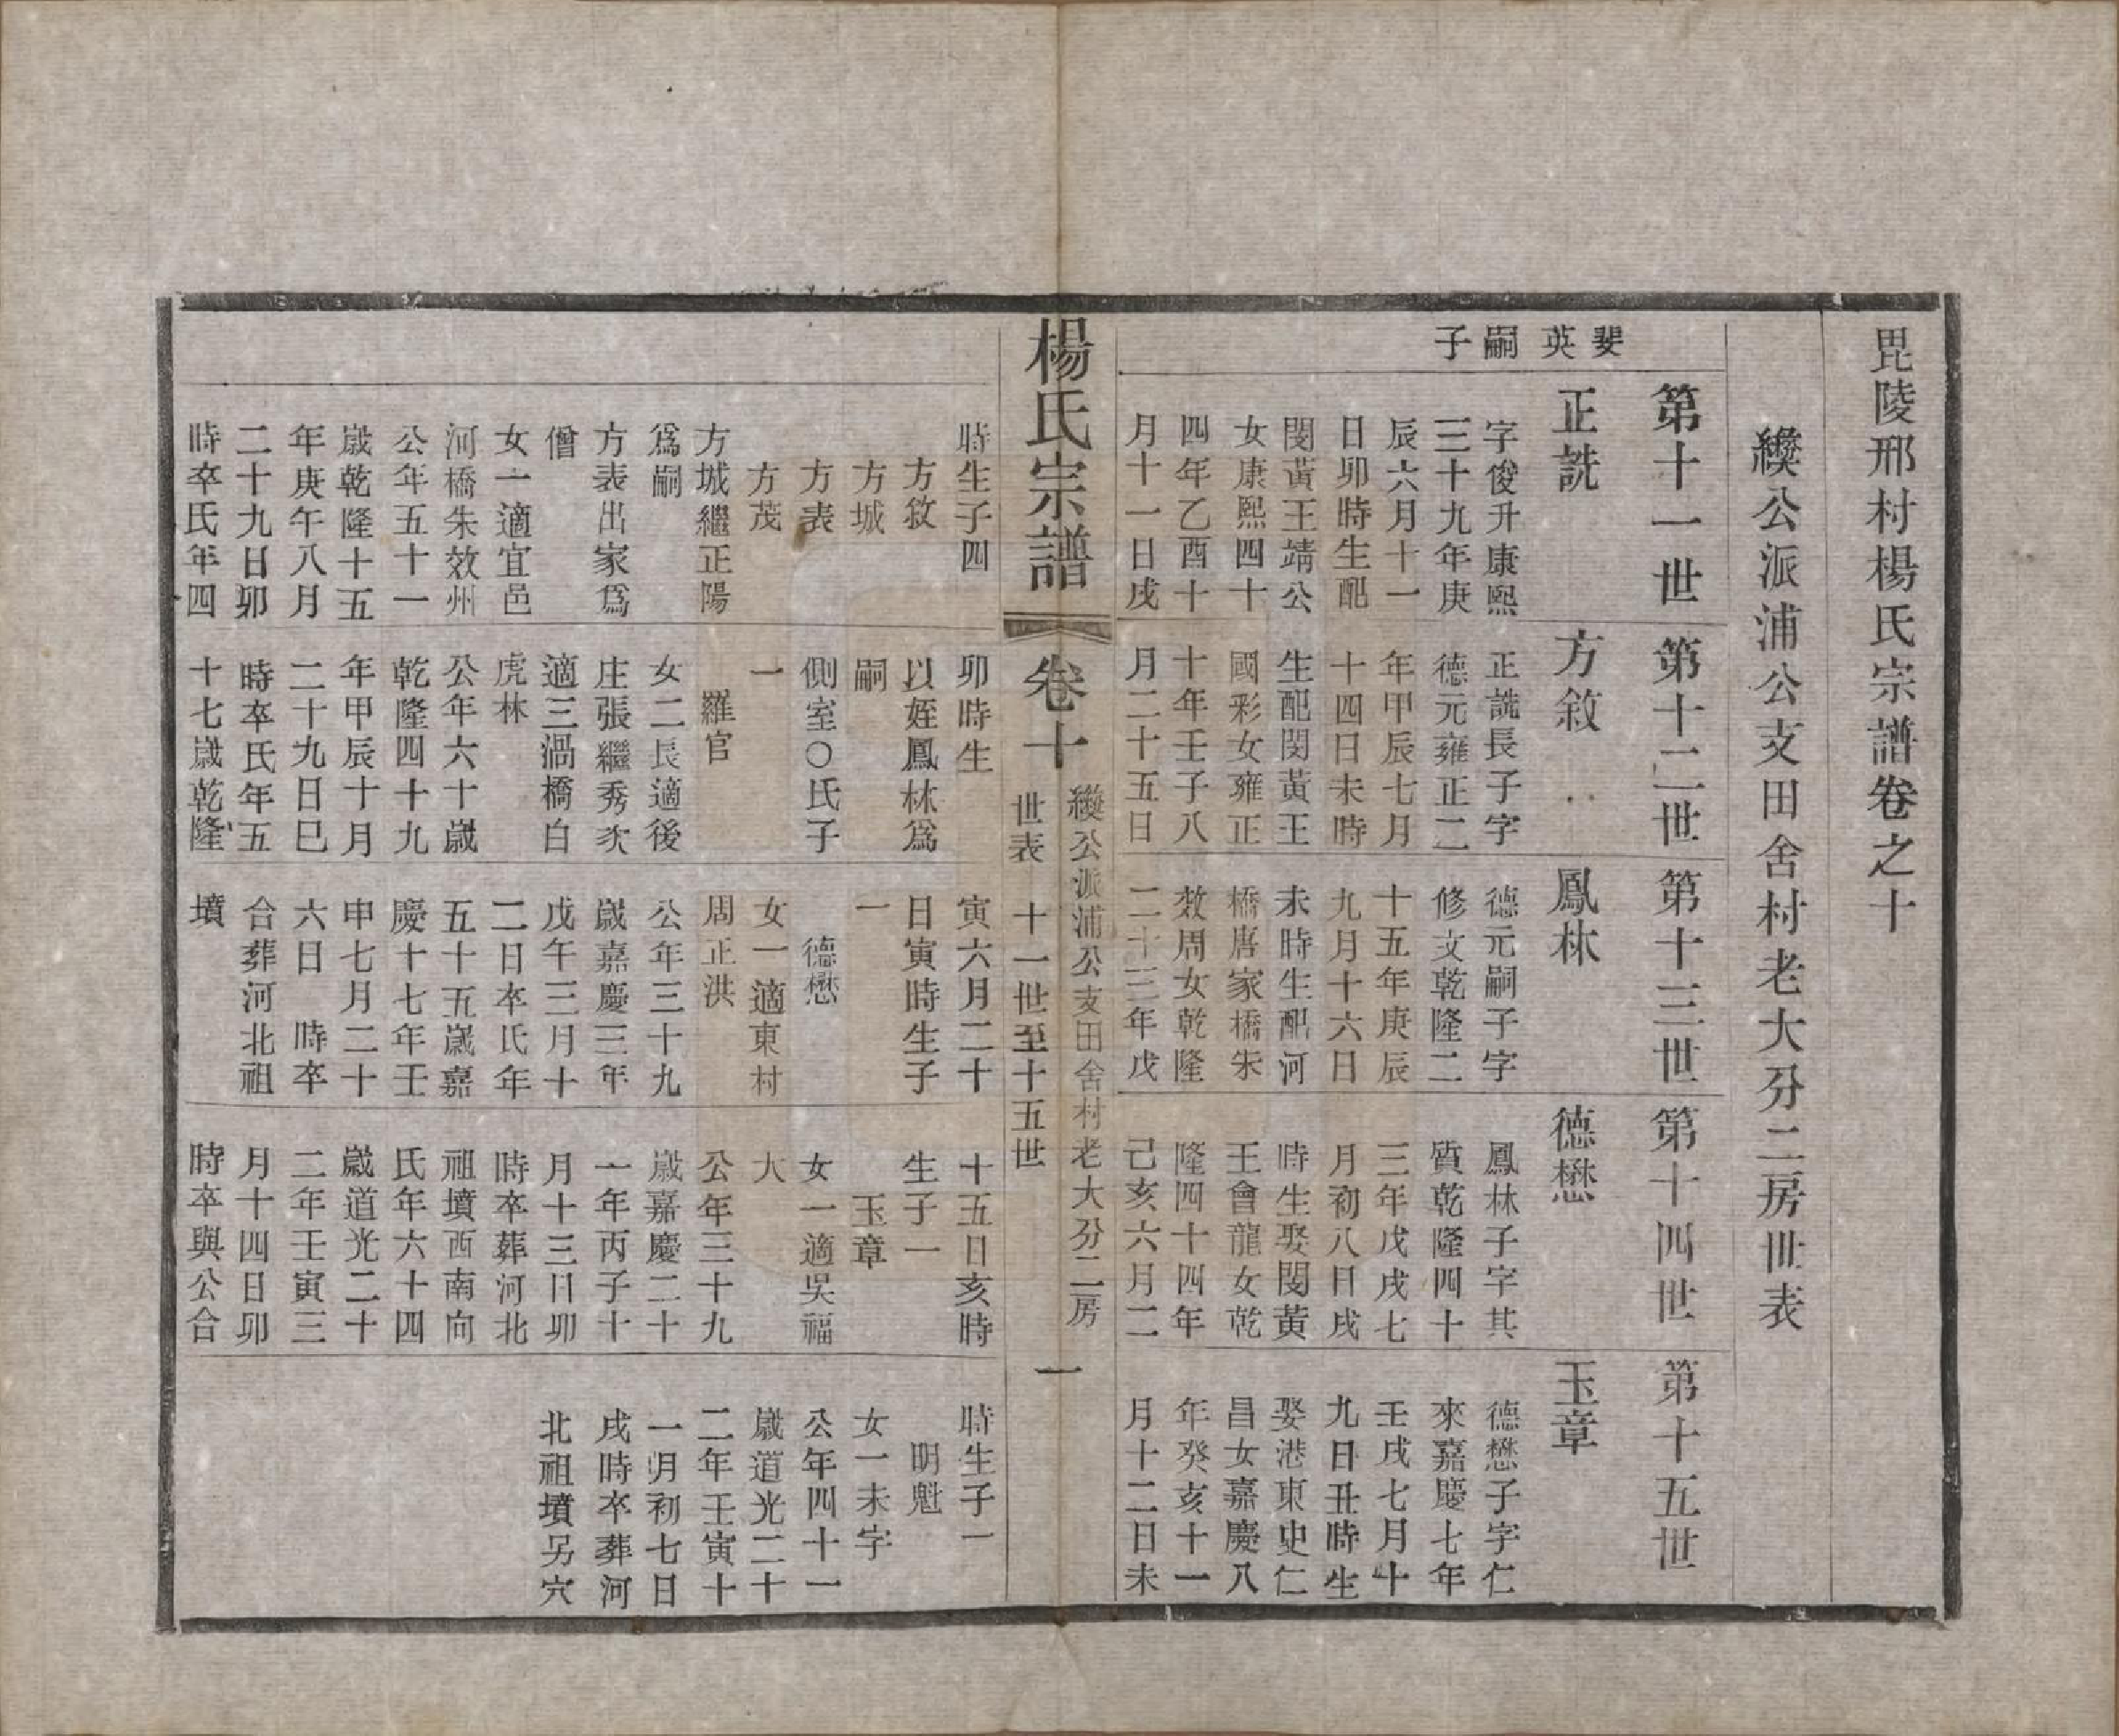 毘陵邢村楊氏宗譜卷之十
纔公派浦公支田舍村老大分二房世表
斐英嗣子
第十一世
正詵
字俊升康熙
三十九年庚
辰六月十一
日卯時生配
閔黃王靖公
女康熙四十
四年乙酉十
月十一日戌
第十二世
方敘
正詵長子字
德元雍正二
年甲辰七月
十四日未時
生配閔黃王
國彩女雍正
十年壬子八
月二十五日
第十三世
鳳林
德元嗣子字
修文乾隆二
十五年庚辰
九月十六日
未時生配河
橋唐家橋朱
效周女乾隆
二十三年戊
第十四世
德懋
鳳林子字其
質乾隆四十
三年戊戌七
月初八日戌
時生娶閔黃
王會龍女乾
隆四十四年
己亥六月二
第十五世
玉章
德懋子字仁
來嘉慶七年
壬戌七月十
九日丑時生
娶港東史仁
昌女嘉慶八
年癸亥十一
月十二日未
楊氏宗譜
卷十
纔公派浦公支田舍村老大分二房
世表 十一世至十五世
一
時生子四
方敘
方城
方表
方茂
方城繼正陽
爲嗣
方表出家爲
僧
女一適宜邑
河橋朱效州
公年五十一
歲乾隆十五
年庚午八月
二十九日卯
時卒氏年四
卯時生
以姪鳳林爲
嗣
側室○氏子
一
羅官
女二長適後
庄張繼秀次
適三渦橋白
虎林
公年六十歲
乾隆四十九
年甲辰十月
二十九日巳
時卒氏年五
十七歲乾隆
寅六月二十
日寅時生子
一
德懋
女一適東村
周正洪
公年三十九
歲嘉慶三年
戊午三月十
二日卒氏年
五十五歲嘉
慶十七年壬
申七月二十
六日 時卒
合葬河北祖
墳
十五日亥時
生子一
玉章
女一適吳福
大
公年三十九
歲嘉慶二十
一年丙子十
月十三日卯
時卒葬河北
祖墳西南向
氏年六十四
歲道光二十
二年壬寅三
月十四日卯
時卒與公合
時生子一
明魁
女一未字
公年四十一
歲道光二十
二年壬寅十
一月初七日
戌時卒葬河
北祖墳另穴